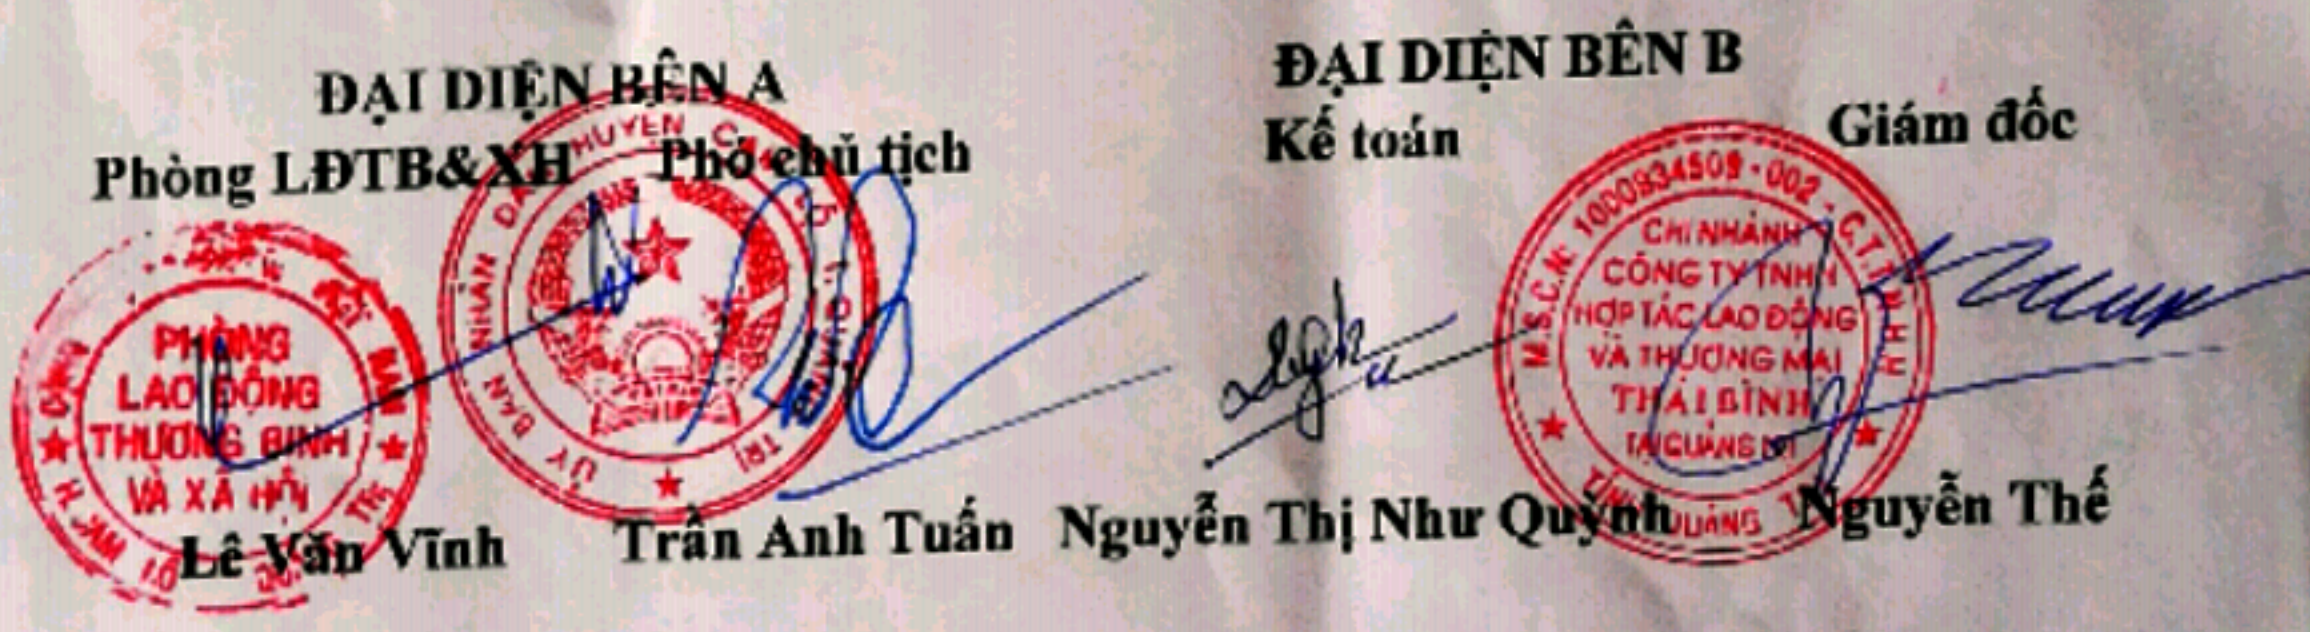 ĐẠI DIỆN BÊN A
Phòng LĐTB&XH Phó chủ tịch
PHÒNG
LAO ĐỘNG
THƯƠNG BINH
VÀ XÃ HỘI
ỦY BAN NHÂN DÂN HUYỆN
TRỊ
Lê Văn Vĩnh Trần Anh Tuấn
ĐẠI DIỆN BÊN B
Kế toán Giám đốc
M.S.C.N: 1000934509-002-C.T.T.N.H.H
CHI NHÁNH
CÔNG TY TNHH
HỢP TÁC LAO ĐỘNG
VÀ THƯƠNG MẠI
THÁI BÌNH
TẠI QUẢNG TRỊ
TỈNH QUẢNG
Nguyễn Thị Như Quỳnh Nguyễn Thế